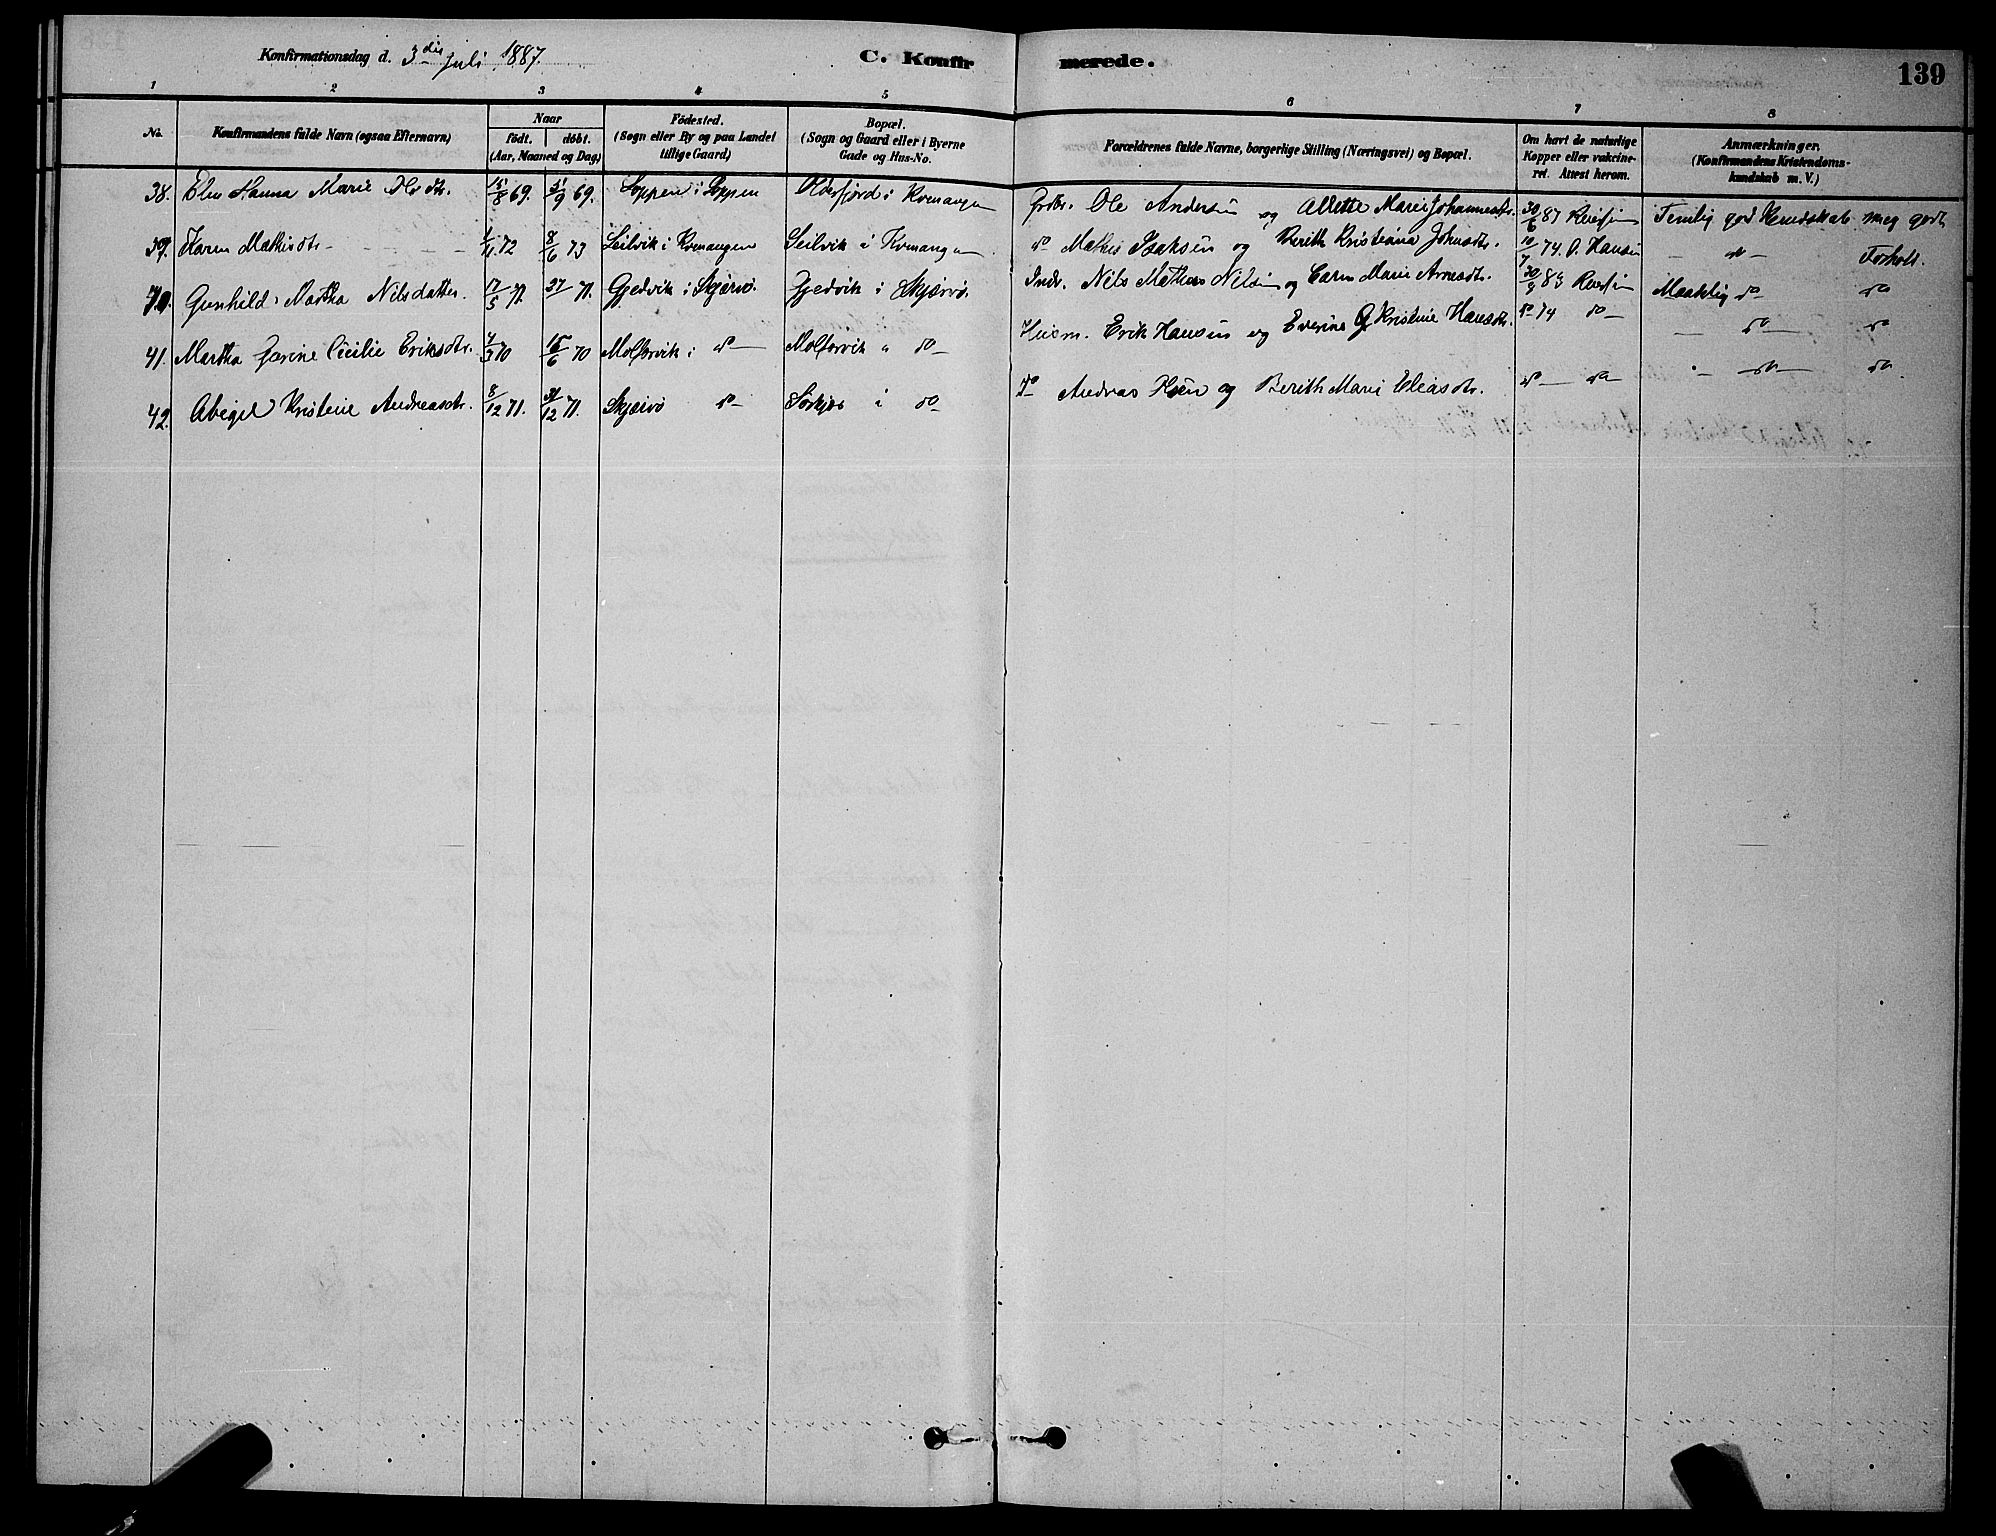 Konfirmationsdag d. 3die Juli 1887.
C. Konfirmerede.
139
1 2 3 4 5 6 7 8
No. Konfirmandens fulde Navn (ogsaa Efternavn) Naar födt. döbt. (Aar, Maaned og Dag) Födested. (Sogn eller By og paa Landet tillige Gaard) Bopæl. (Sogn og Gaard eller i Byerne Gade og Hus-No. Forældrenes fulde Navne, borgerlige Stilling (Næringsvei) og Bopæl. Om havt de naturlige Kopper eller vakcineret. Attest herom. Anmærkninger. (Konfirmandens Kristendomskundskab m. V.)
38. Elen Hanna Marie Olsdtr. 15/8 69. 5/9 69. Loppen i Loppen Olderfjord i Kvenangen Grdbr. Ole Andersen og Allette Marie Johannesdtr. 30/6 87 Temlig god Kundskab meg godt
39. Karen Mathisdtr. 72 8/6 73 Seilvik i Kvenangen Seilvik i Kvenangen do Mathis Isaksen og Berith Kristiana Johnsdtr. 10/7 74 O. Hansen — do — Forhold.
40. Gunhild Martha Nilsdatter. 17/5 71. 71. Gjedvik i Skjærvö. Gjedvik i Skjærvö. Indr. Nils Mathias Nilsen og Caren Marie Arnesdtr. 30/9 83 Maadelig do do
41. Martha Gurine Cecilie Eriksdtr. 4/3 70 15/6 70 i do Husm. Erik Hansen og Everine Kristine Hansdtr. do 74 do — do — do
42. Abigel Kristine Andreasdtr. 8/12 71. 31/12 71. Skjærvö do Sörkjos i do do Andreas og Berith Marie Eliasdtr. do do — do — do